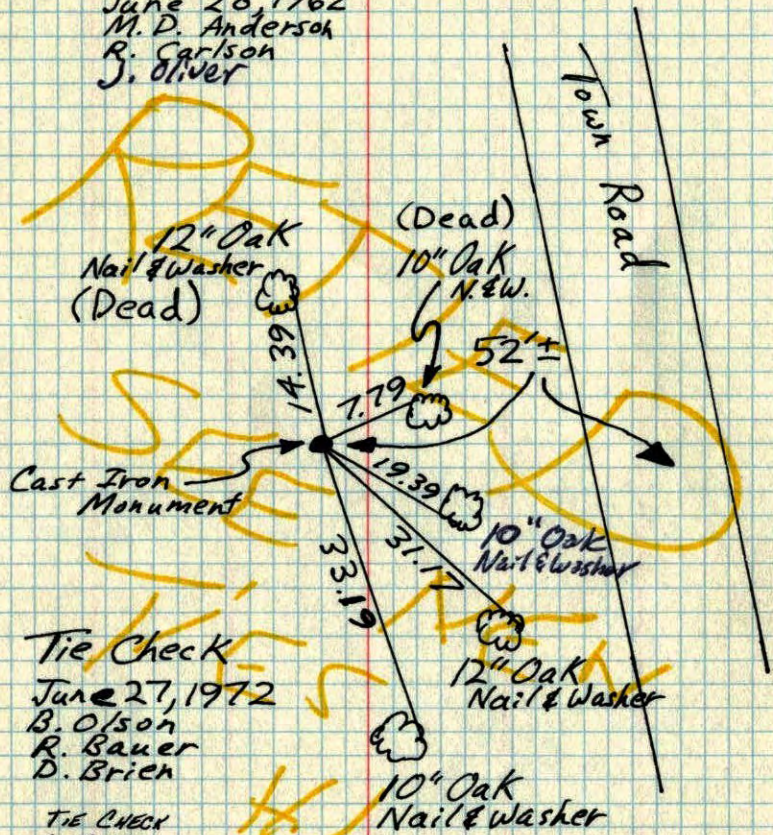 June 28, 1962
M. D. Anderson
R. Carlson
J. Oliver
Town Road
12" Oak
Nail & Washer
(Dead)
(Dead)
10" Oak
N. & W.
52'±
14.39
7.79
Cast Iron
Monument
19.39
10" Oak
Nail & Washer
31.17
33.19
12" Oak
Nail & Washer
Tie Check
June 27, 1972
B. Olson
R. Bauer
D. Brien
10" Oak
Nail & Washer
TIE CHECK